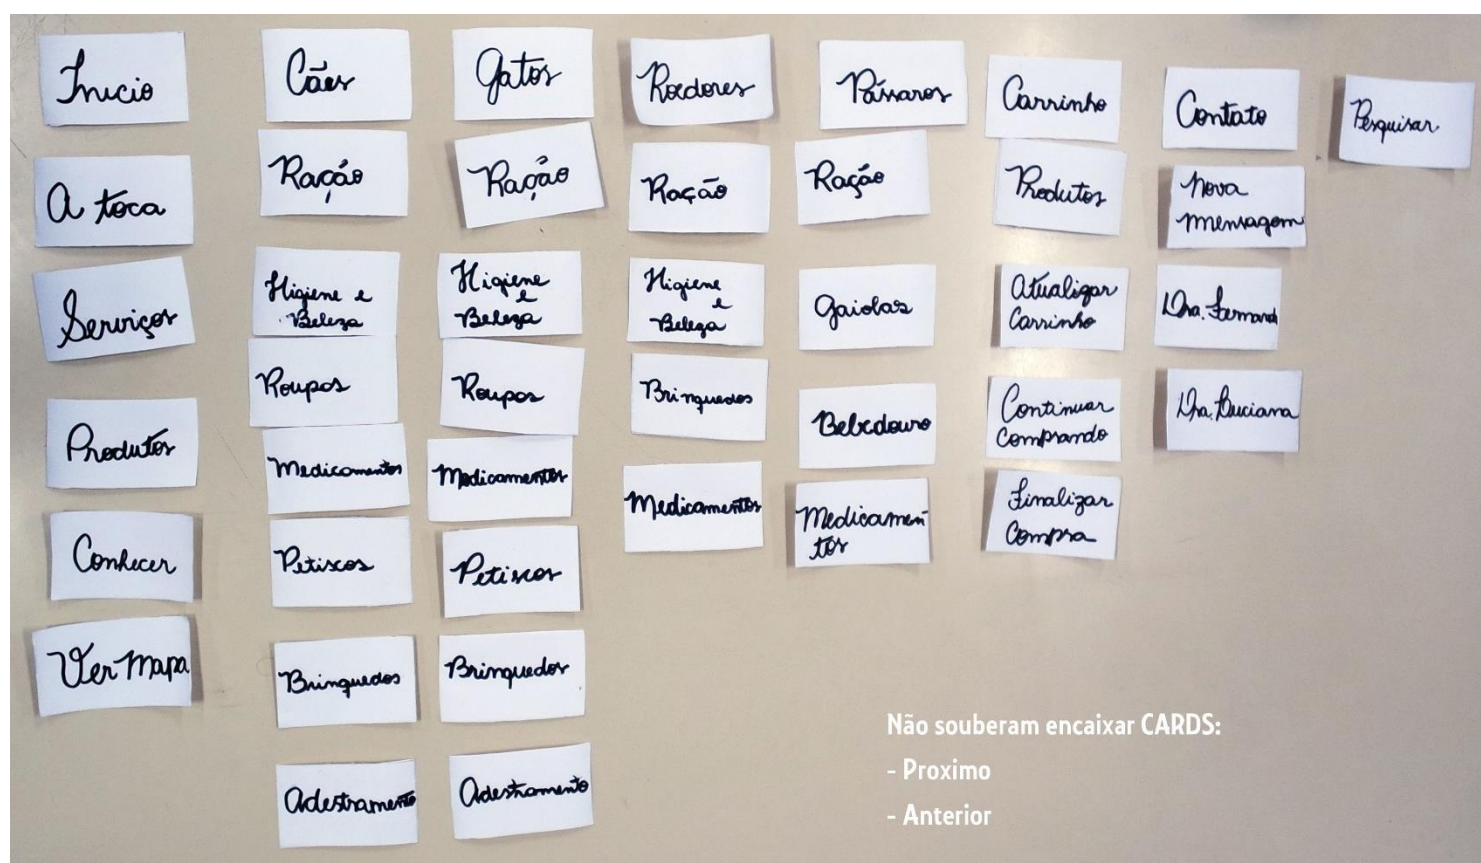 Inicio
A toca
Serviços
Produtos
Conhecer
Ver Mapa
Cães
Ração
Higiene e
Beleza
Roupas
Medicamentos
Petiscos
Brinquedos
Adestramento
Gatos
Ração
Higiene
e
Beleza
Roupas
Medicamentos
Petiscos
Brinquedos
Adestramento
Roedores
Ração
Higiene
e
Beleza
Brinquedos
Medicamentos
Pássaros
Ração
Gaiolas
Bebedouro
Medicamen
tos
Carrinho
Produtos
Atualizar
Carrinho
Continuar
Comprando
Finalizar
Compra
Contato
Nova
mensagem
Dra. Fernanda
Dra. Luciana
Pesquisar
Não souberam encaixar CARDS:
- Proximo
- Anterior